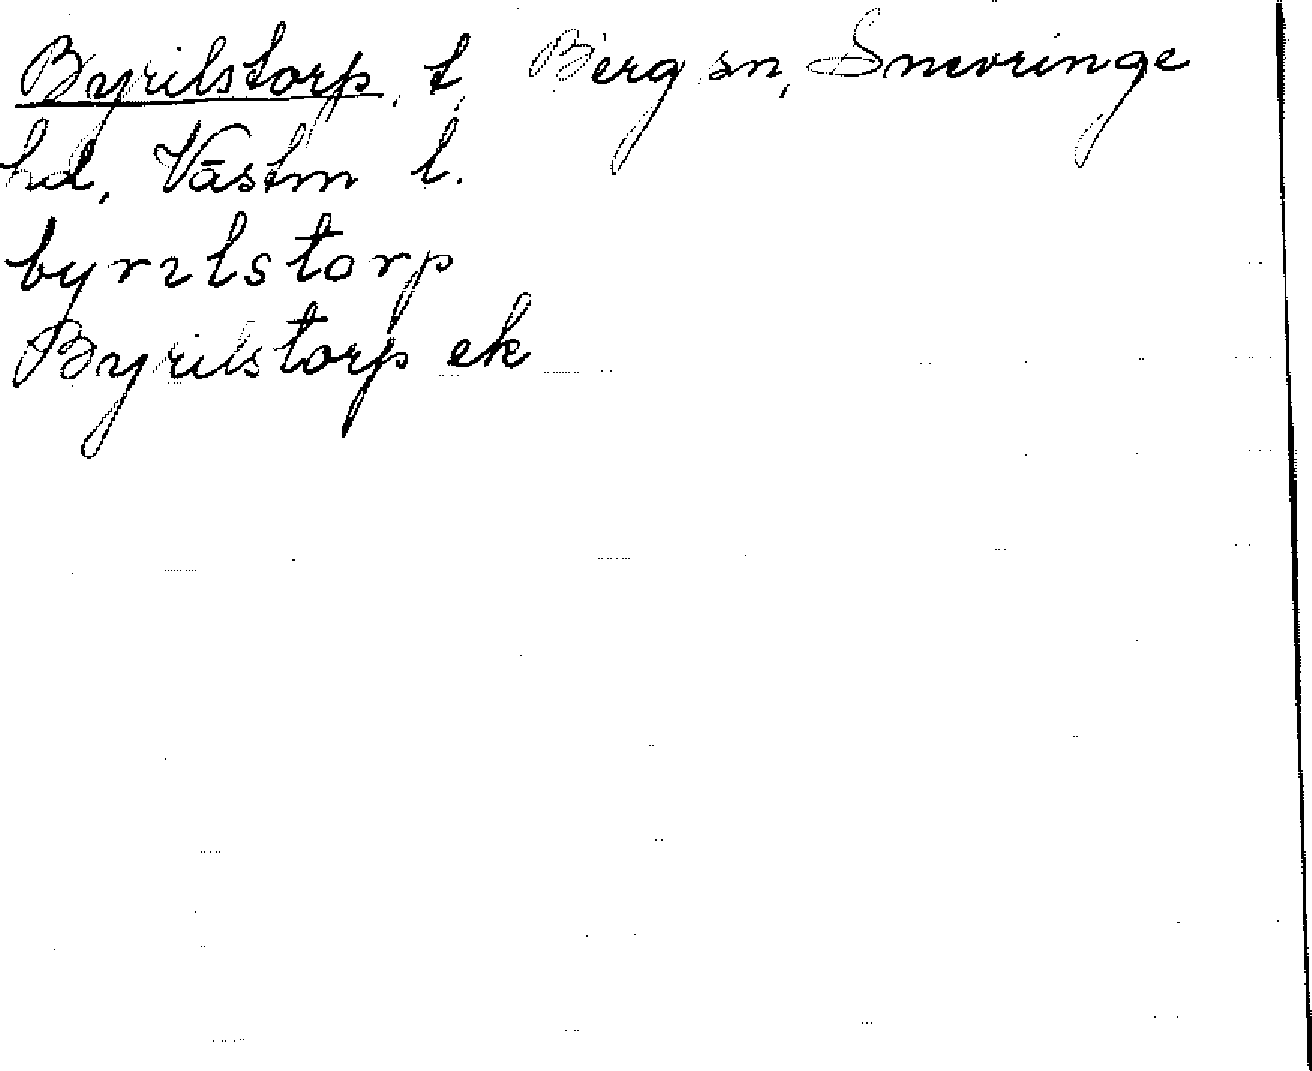 Byrilstorp, t, Berg sn, Snevringe
hd, Västm l.
byrılstorp
Byrilstorp ek